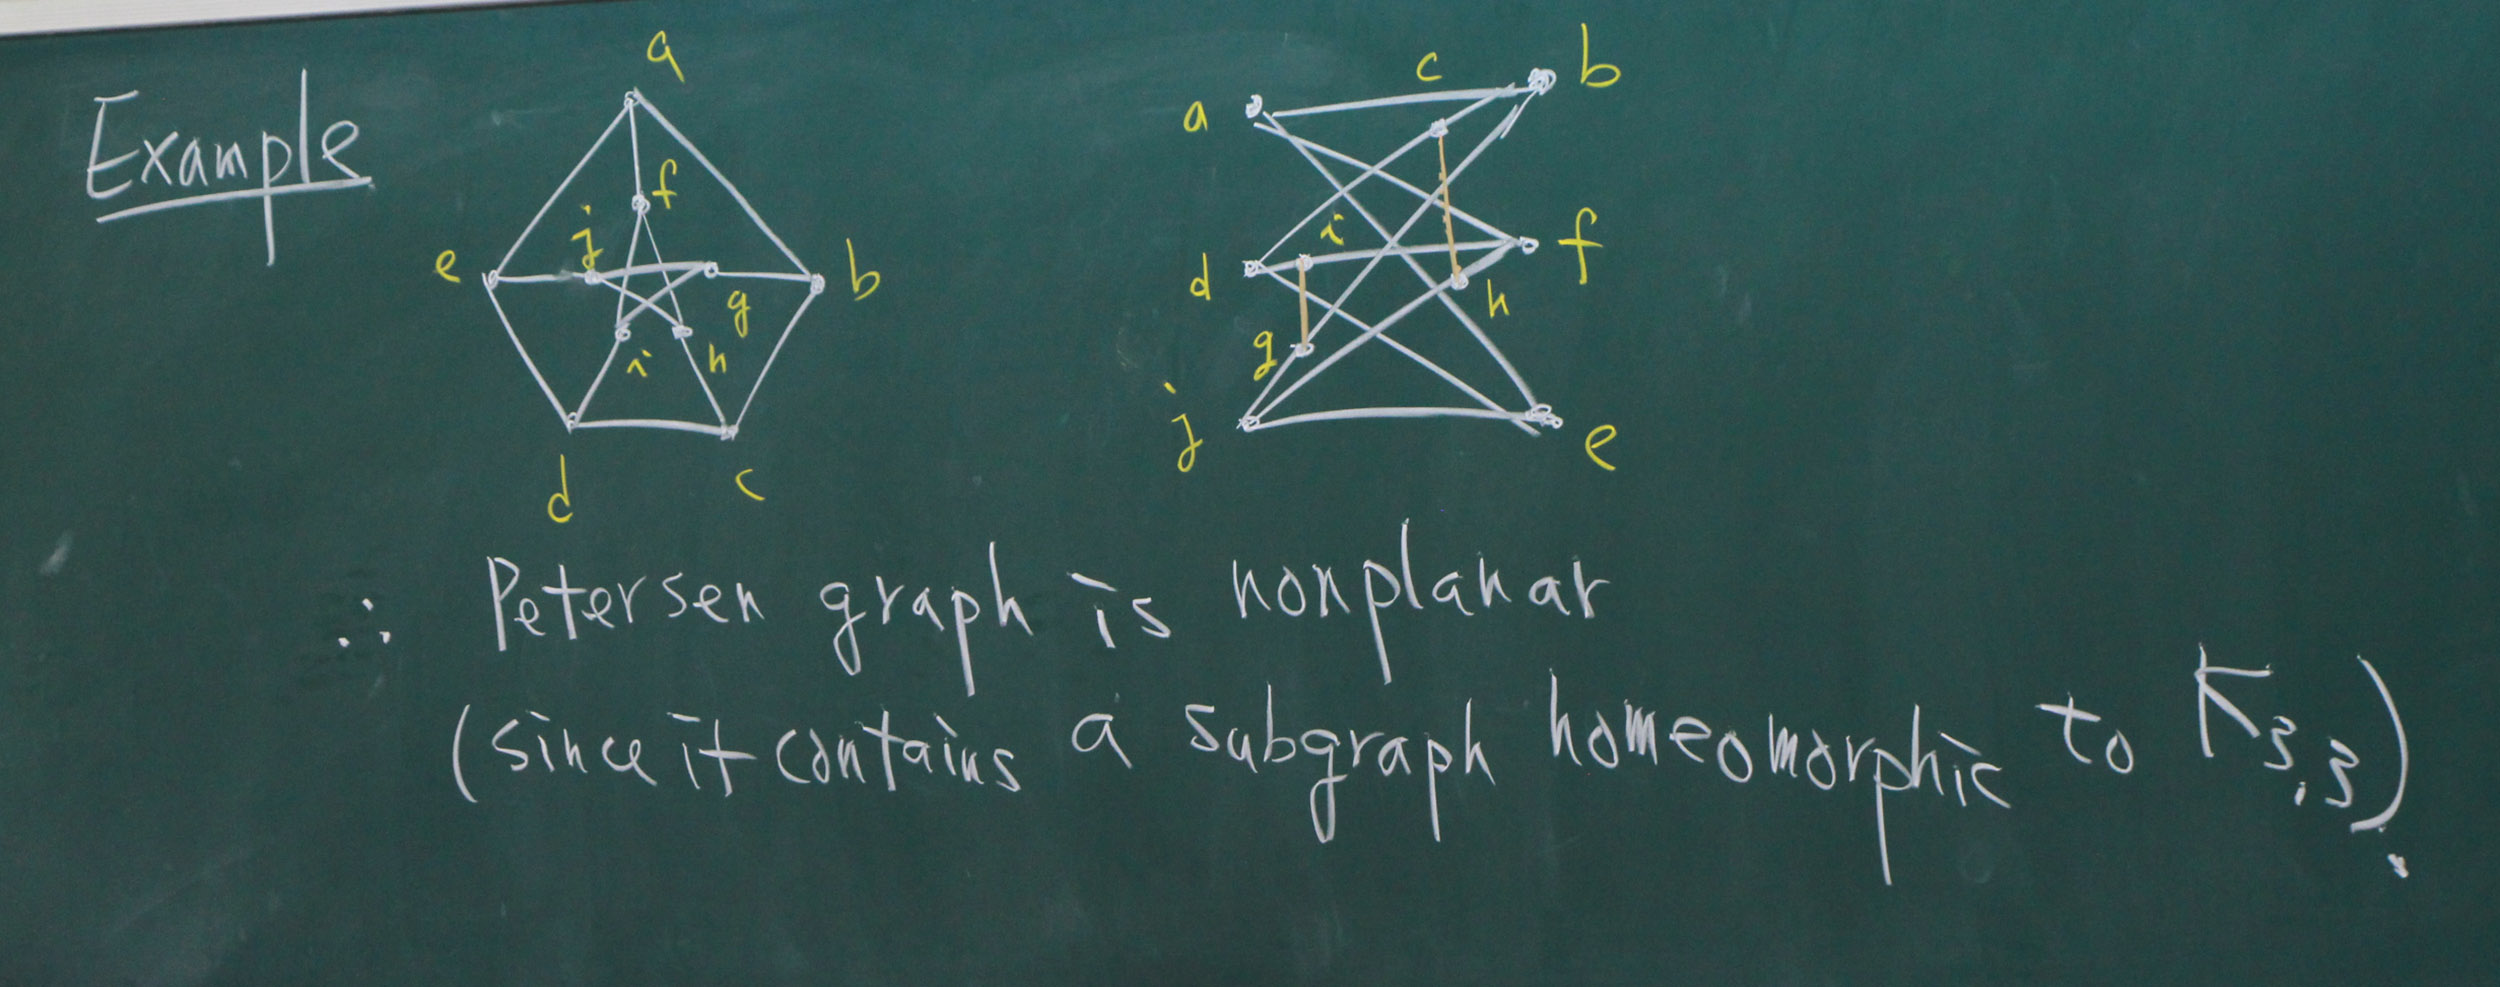 Example
a
f
j
e
b
g
i
h
d
c
c
b
a
i
f
d
h
g
j
e
∴ Petersen graph is nonplanar
(since it contains a subgraph homeomorphic to K3,3).